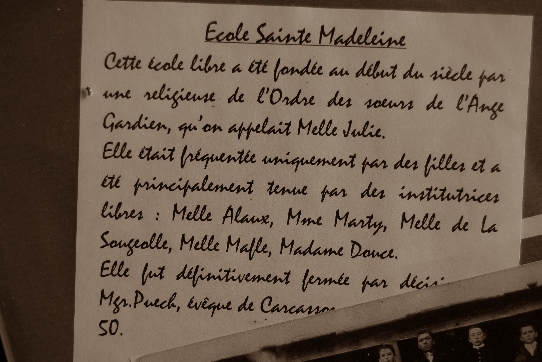 Ecole Sainte Madeleine
Cette école libre a été fondée au début du siècle par
une religieuse de l'Ordre des soeurs de l'Ange
Gardien, qu'on appelait Melle Julie.
Elle était fréquentée uniquement par des filles et a
été principalement tenue par des institutrices
libres : Melle Alaux, Mme Marty, Melle de La
Sougeolle, Melle Mafle, Madame Douce.
Elle fut définitivement fermée par
Mgr.Puech, évêque de
50.